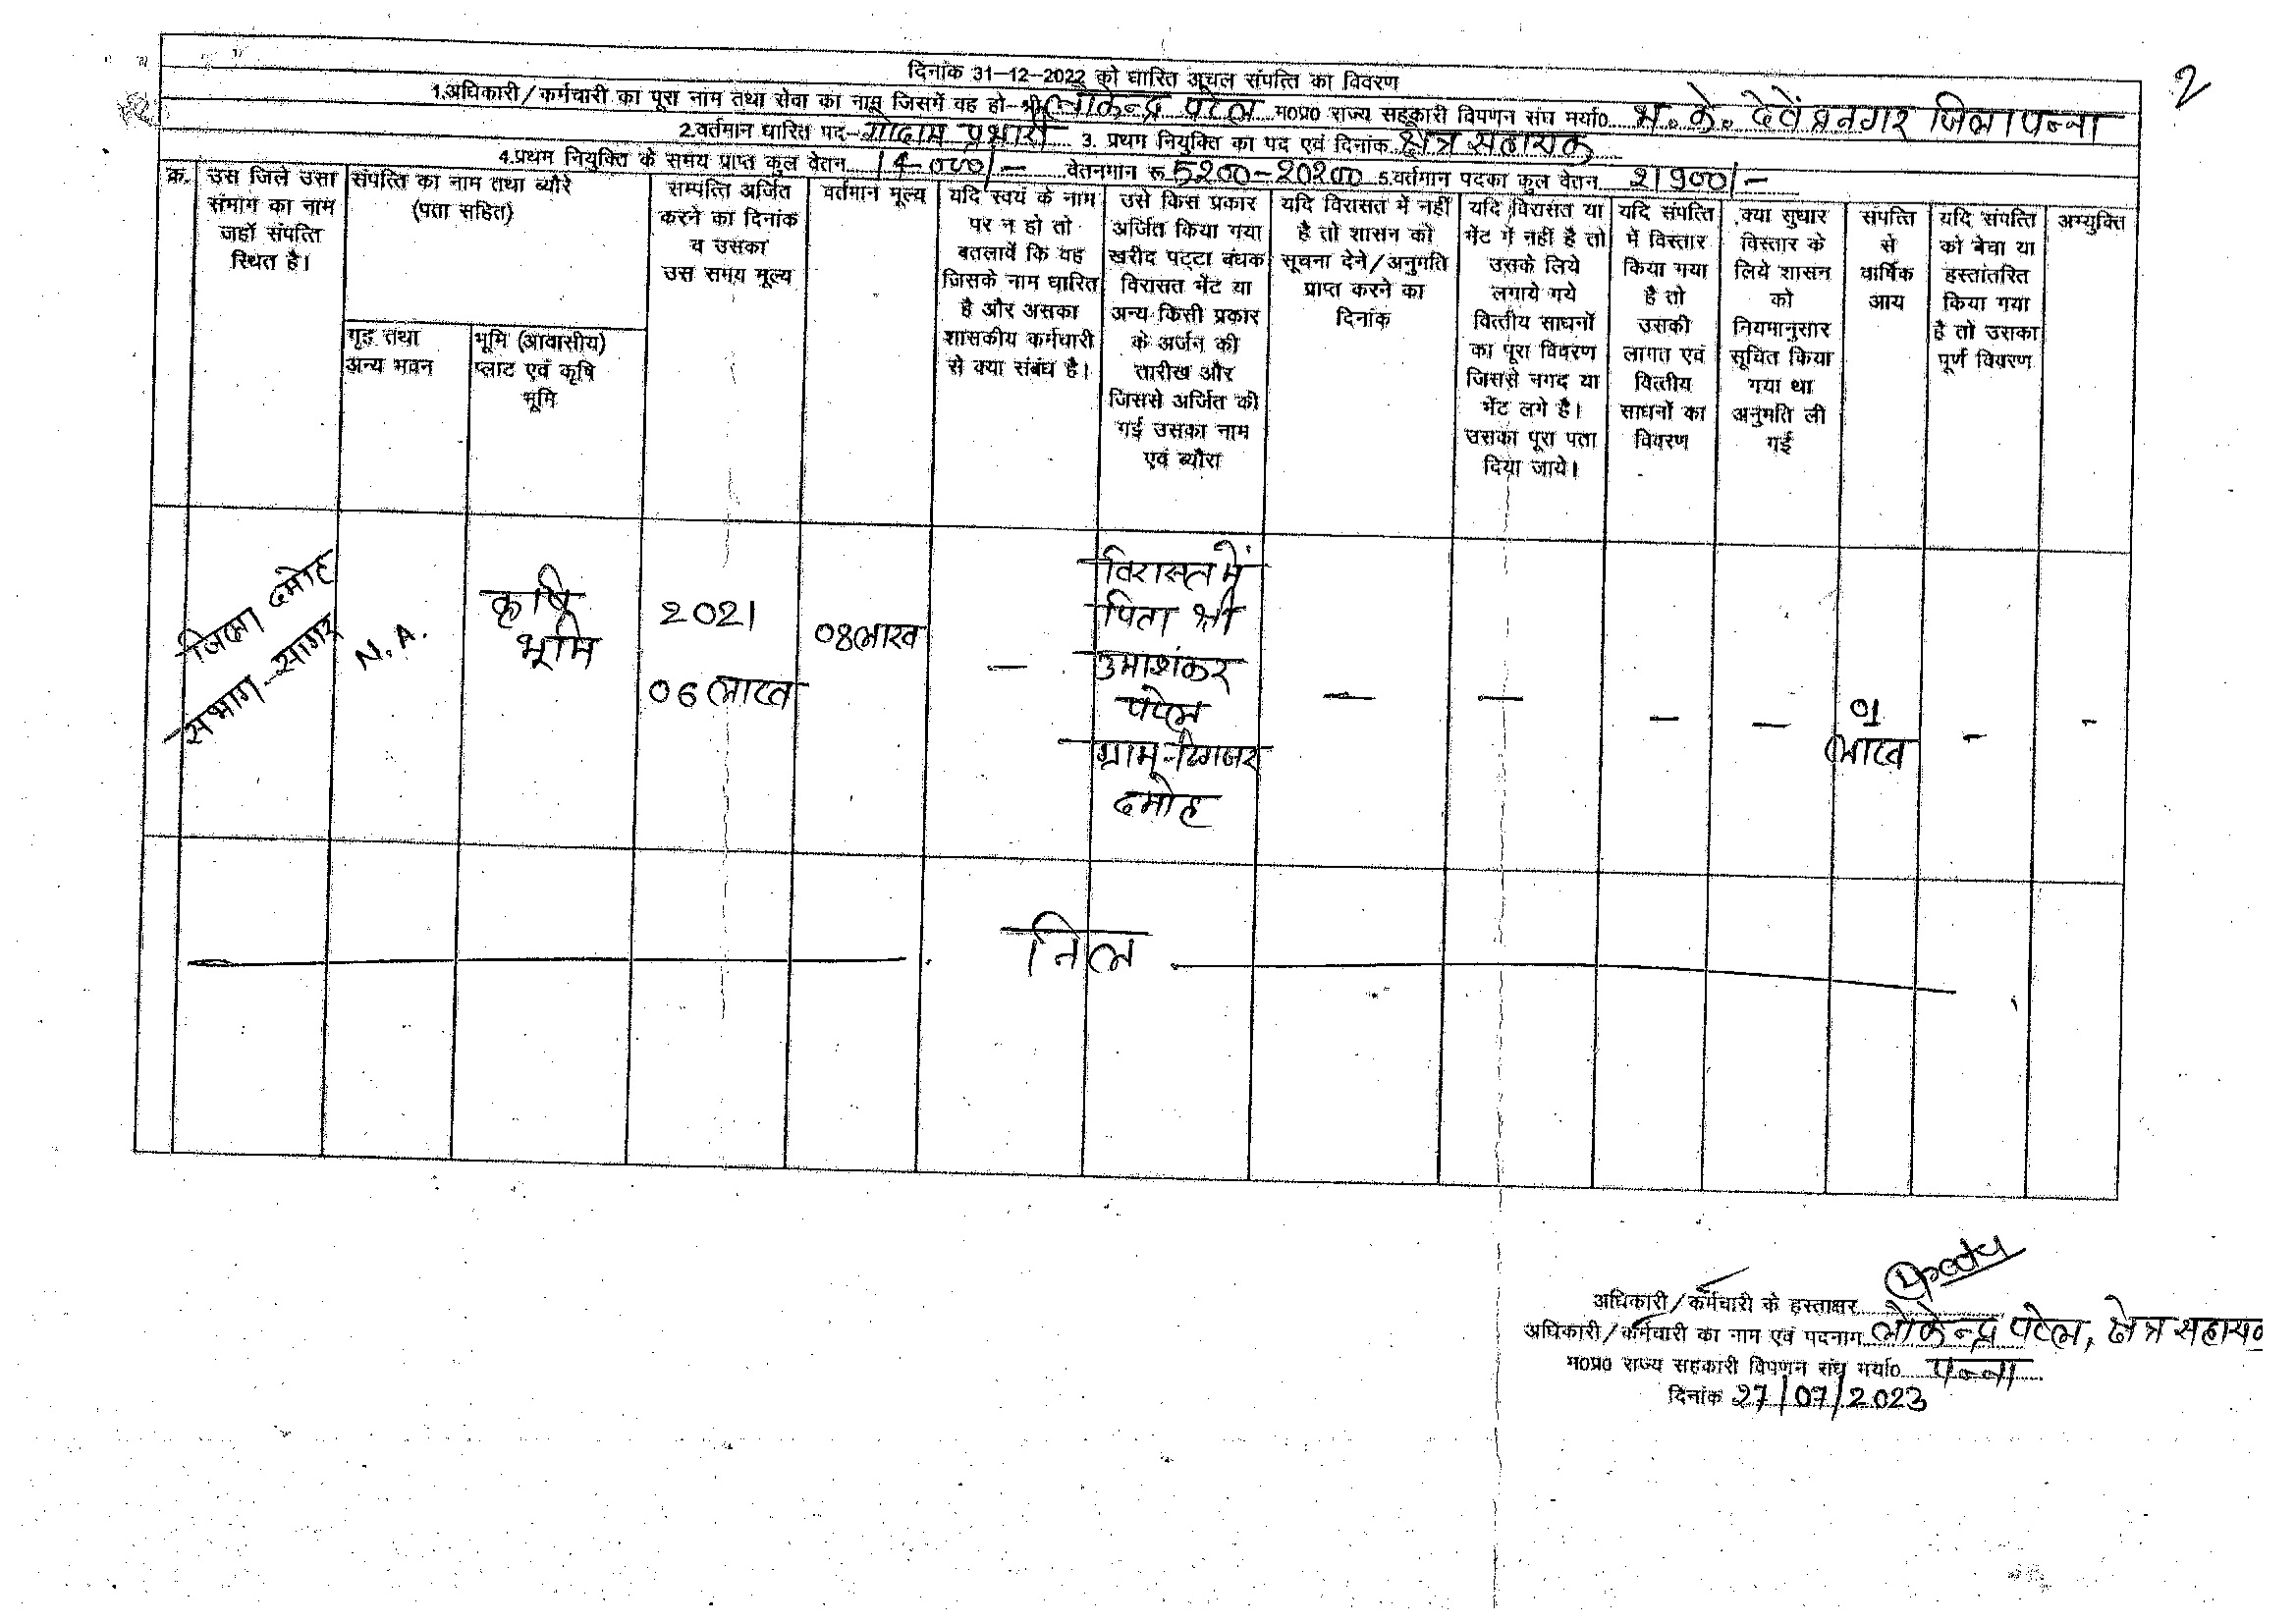 2
दिनांक 31-12-2022 को धारित अचल संपत्ति का विवरण
1.अधिकारी/कर्मचारी का पूरा नाम तथा सेवा का नाम जिसमें वह हो-श्री लोकेन्द्र पटेल म0प्र0 राज्य सहकारी विपणन संघ मर्या0 भ.के. देवेंद्रनगर जिला पन्ना
2.वर्तमान धारित पद- गोदाम प्रभारी 3. प्रथम नियुक्ति का पद एवं दिनांक क्षेत्र सहायक
4.प्रथम नियुक्ति के समय प्राप्त कुल वेतन 14000/- वेतनमान रू 5200-20200 5.वर्तमान पदका कुल वेतन 21900/-
क्र.
उस जिले उसा
संभाग का नाम
जहाँ संपत्ति
स्थित है।
संपत्ति का नाम तथा ब्यौरे
(पता सहित)
गृह तथा
अन्य भवन
भूमि (आवासीय)
प्लाट एवं कृषि
भूमि
सम्पत्ति अर्जित
करने का दिनांक
व उसका
उस समय मूल्य
वर्तमान मूल्य
यदि स्वयं के नाम
पर न हो तो
बतलावें कि वह
जिसके नाम धारित
है और असका
शासकीय कर्मचारी
से क्या संबंध है।
उसे किस प्रकार
अर्जित किया गया
खरीद पट्टा बंधक
विरासत भेंट या
अन्य किसी प्रकार
के अर्जन की
तारीख और
जिससे अर्जित की
गई उसका नाम
एवं ब्यौरा
यदि विरासत में नहीं
है तो शासन को
सूचना देने/अनुमति
प्राप्त करने का
दिनांक
यदि विरासत या
भेंट में नहीं है तो
उसके लिये
लगाये गये
वित्तीय साधनों
का पूरा विवरण
जिससे नगद या
भेंट लगे है।
उसका पूरा पता
दिया जाये।
यदि संपत्ति
में विस्तार
किया गया
है तो
उसकी
लागत एवं
वित्तीय
साधनों का
विवरण
क्या सुधार
विस्तार के
लिये शासन
को
नियमानुसार
सूचित किया
गया था
अनुमति ली
गई
संपत्ति
से
वार्षिक
आय
यदि संपत्ति
को बेचा या
हस्तांतरित
किया गया
है तो उसका
पूर्ण विवरण
अभ्युक्ति
जिला दमोह
संभाग-सागर
N.A.
कृषि
भूमि
2021
06 लाख
08 लाख
-
विरासत में
पिता श्री
उमाशंकर
पटेल
ग्राम-
दमोह
-
-
-
-
01
लाख
-
-
निल
अधिकारी/कर्मचारी के हस्ताक्षर
अधिकारी/कर्मचारी का नाम एवं पदनाम लोकेन्द्र पटेल, क्षेत्र सहायक
म0प्र0 राज्य सहकारी विपणन संघ मर्या0 पन्ना
दिनांक 27/07/2023